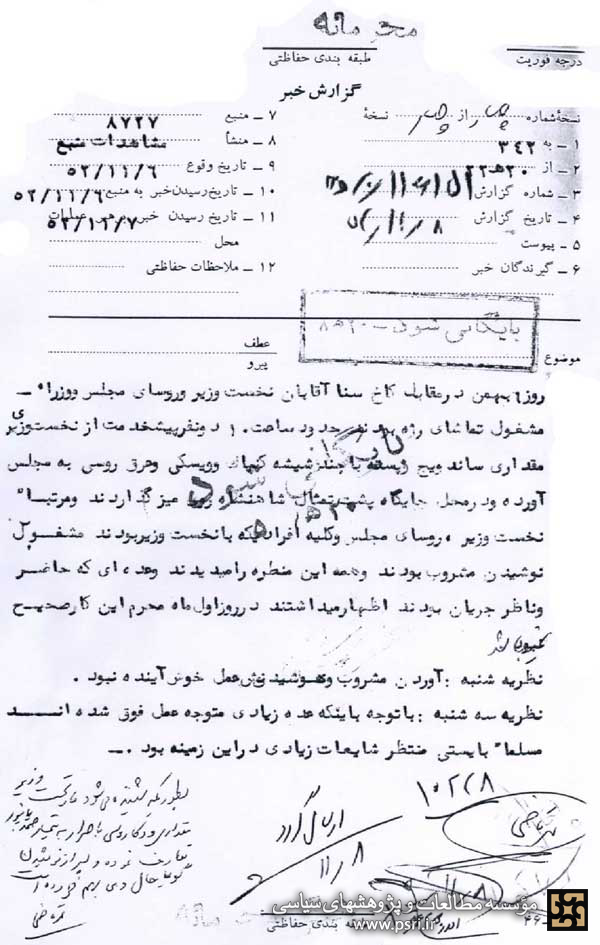 محرمانه
درجه فوریت
طبقه بندی حفاظتی
گزارش خبر
نسخهٔ شماره چهار از چهار نسخهٔ
۱ ـ به ۳۴۲
۲ ـ از ۲۰ ه ۲۲
۳ ـ شماره گزارش
۴ ـ تاریخ گزارش
۵ ـ پیوست
۶ ـ گیرندگان خبر
۷ ـ منبع ۸۷۲۷
۸ ـ منشأ مشاهدات منبع
۹ ـ تاریخ وقوع ۵۲/۱۱/۶
۱۰ ـ تاریخ رسیدن خبر به منبع ۵۲/۱۱/۶
۱۱ ـ تاریخ رسیدن خبر برهبر عملیات ۵۲/۱۱/۷
محل
۱۲ ـ ملاحظات حفاظتی
بایگانی شود ـ ۲۰ ه ۸
موضوع
عطف
پیرو
روز ۶ بهمن در مقابل کاخ سنا آقایان نخست وزیر و روسای مجلس و وزراء ـ
مشغول تماشای رژه بودند حدود ساعت ۱۰ دو نفر پیشخدمت از نخست وزیری
مقداری ساندویچ و پسته با چند شیشه کنیاك و ویسکی و عرق روسی به مجلس
آورده و در محل جایگاه پشت تمثال شاهنشاه روی میز گذاردند و مرتبا"
نخست وزیر و روسای مجلس و کلیه افرادیکه با نخست وزیر بودند مشغول
نوشیدن مشروب بودند و همه این منظره را میدیدند و عده ای که حاضر
و ناظر جریان بودند اظهار میداشتند در روز اول ماه محرم این کار صحیح
نمیباشد
نظریه شنبه : آوردن مشروب و نوشیدنش عمل خوش آینده نبود .
نظریه سه شنبه : با توجه باینکه عده زیادی متوجه عمل فوق شده انـــد
مسلما" بایستی منتظر شایعات زیادی در این زمینه بود . ـ
بطوریکه شنیده می‌شود نخست وزیر
تعارف نموده و پس از نوشیدن
ارسال گردد
۱۱/۸
۱۰۲۲۸
مؤسسه مطالعات و پژوهشهای سیاسی
www.psri.ir
طبقه بندی حفاظتی
محرمانه